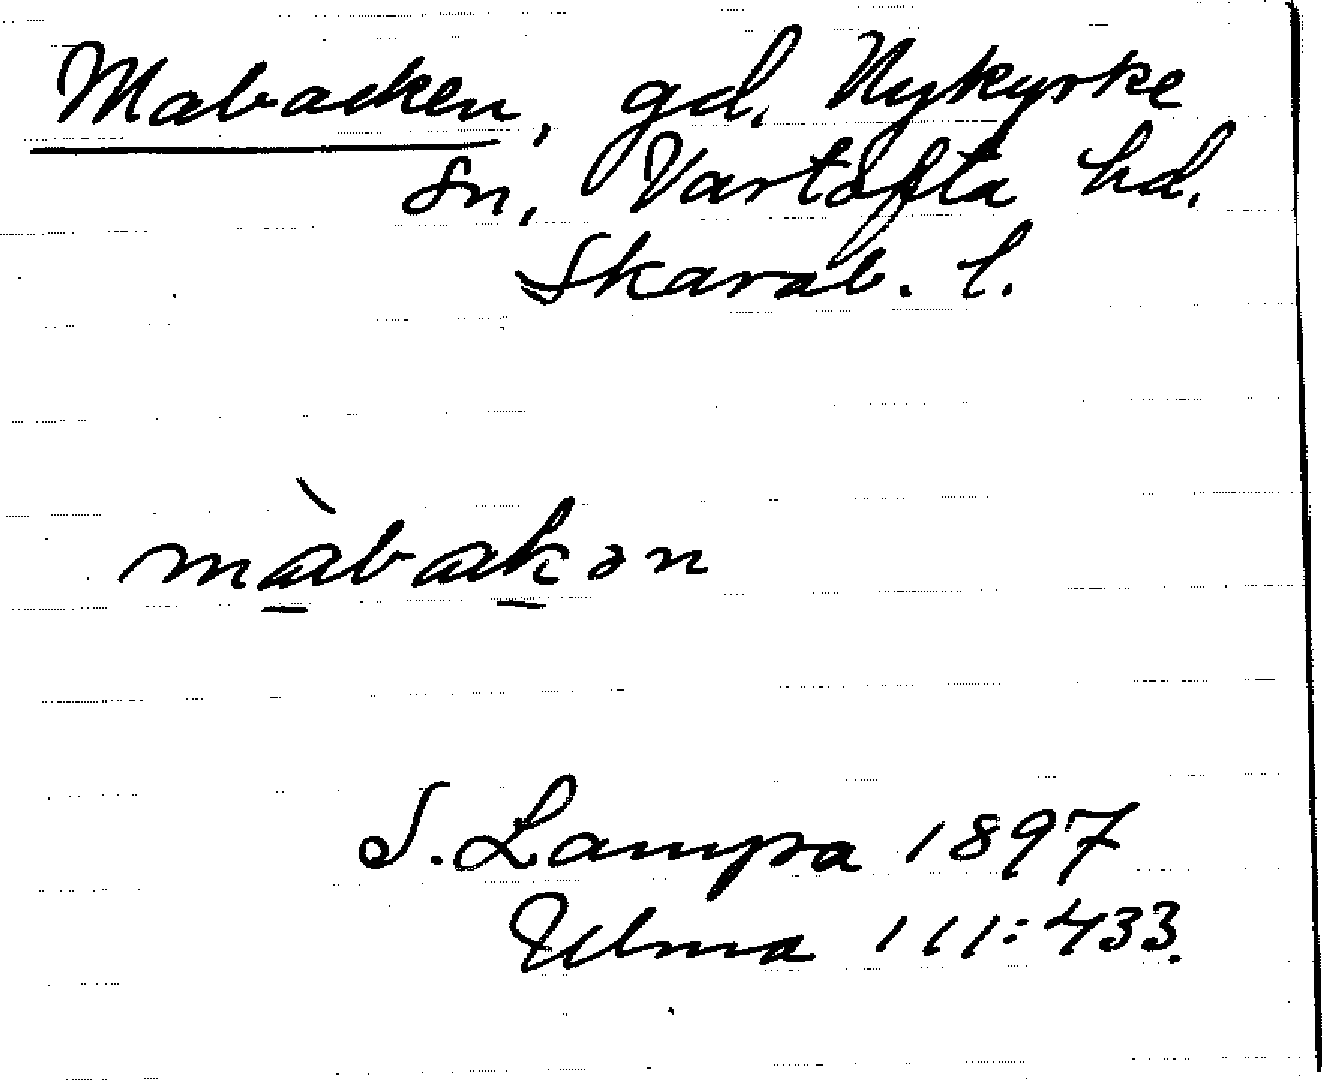 Mabacken, gd. Nykyrke
sn, Vartofta hd.
Skarab. l.
màbakən
S. Lampa 1897
Ulma 111:433.